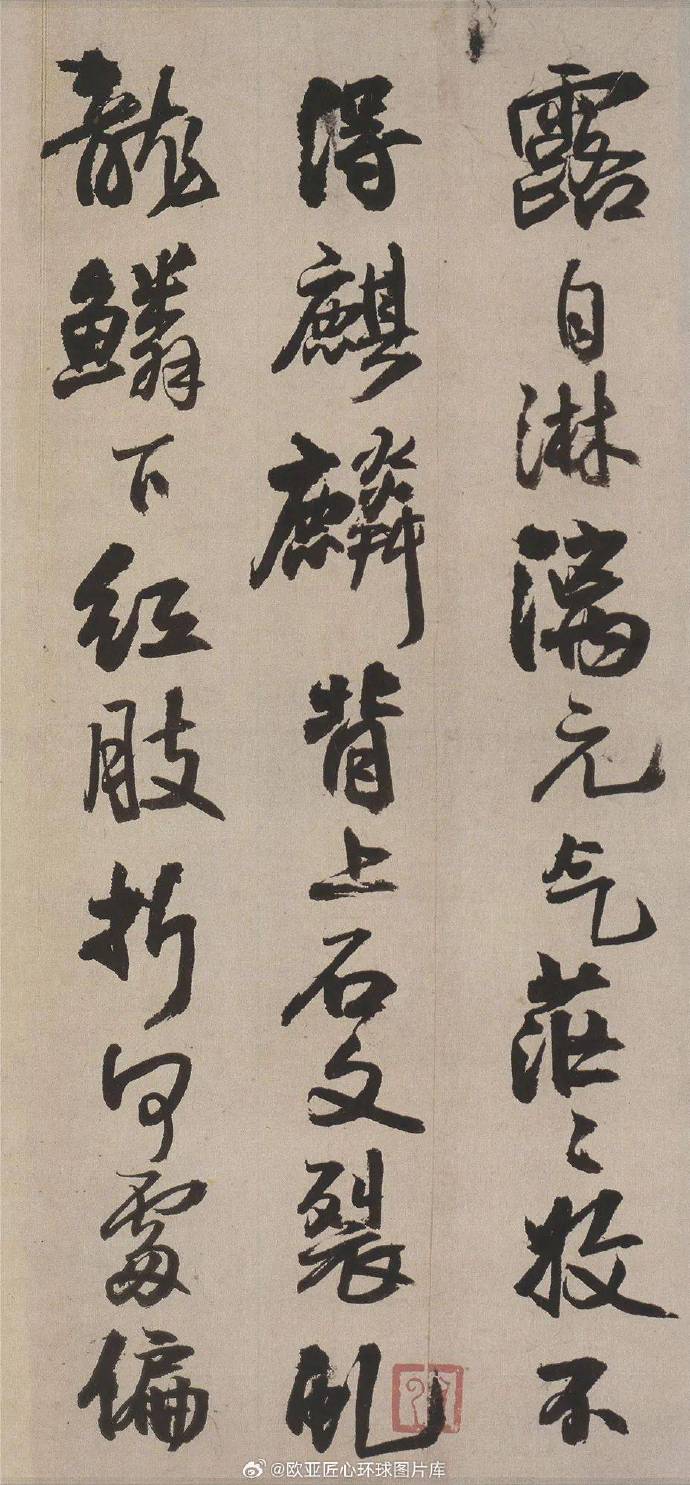 露自淋漓元气茫〻收不
得麒麟背上石文裂虬
龍鱗下紅肢折何處偏
@欧亚匠心环球图片库